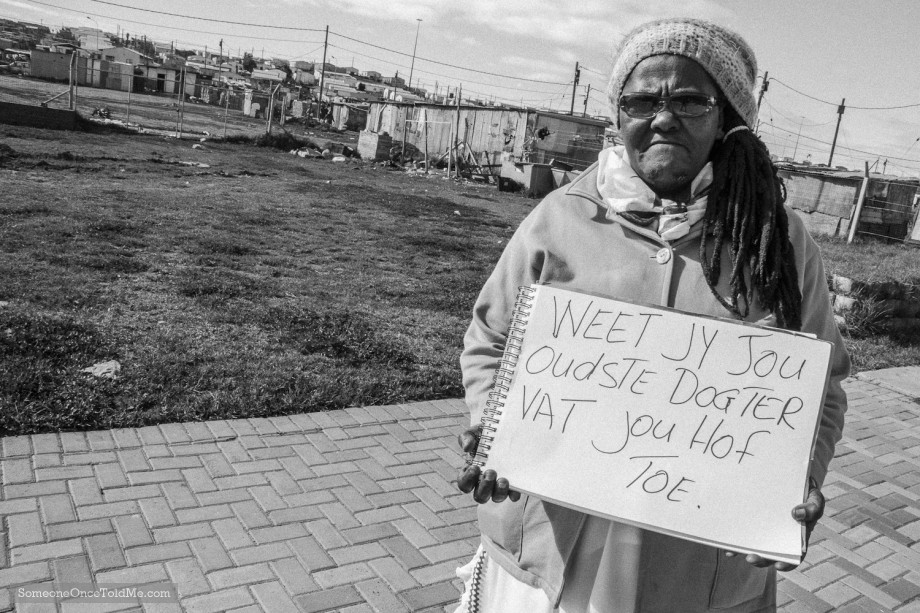 WEET JY JOU
OUDSTE DOGTER
VAT JOU HOF
TOE.
SOMEONEONCETOLDME.COM